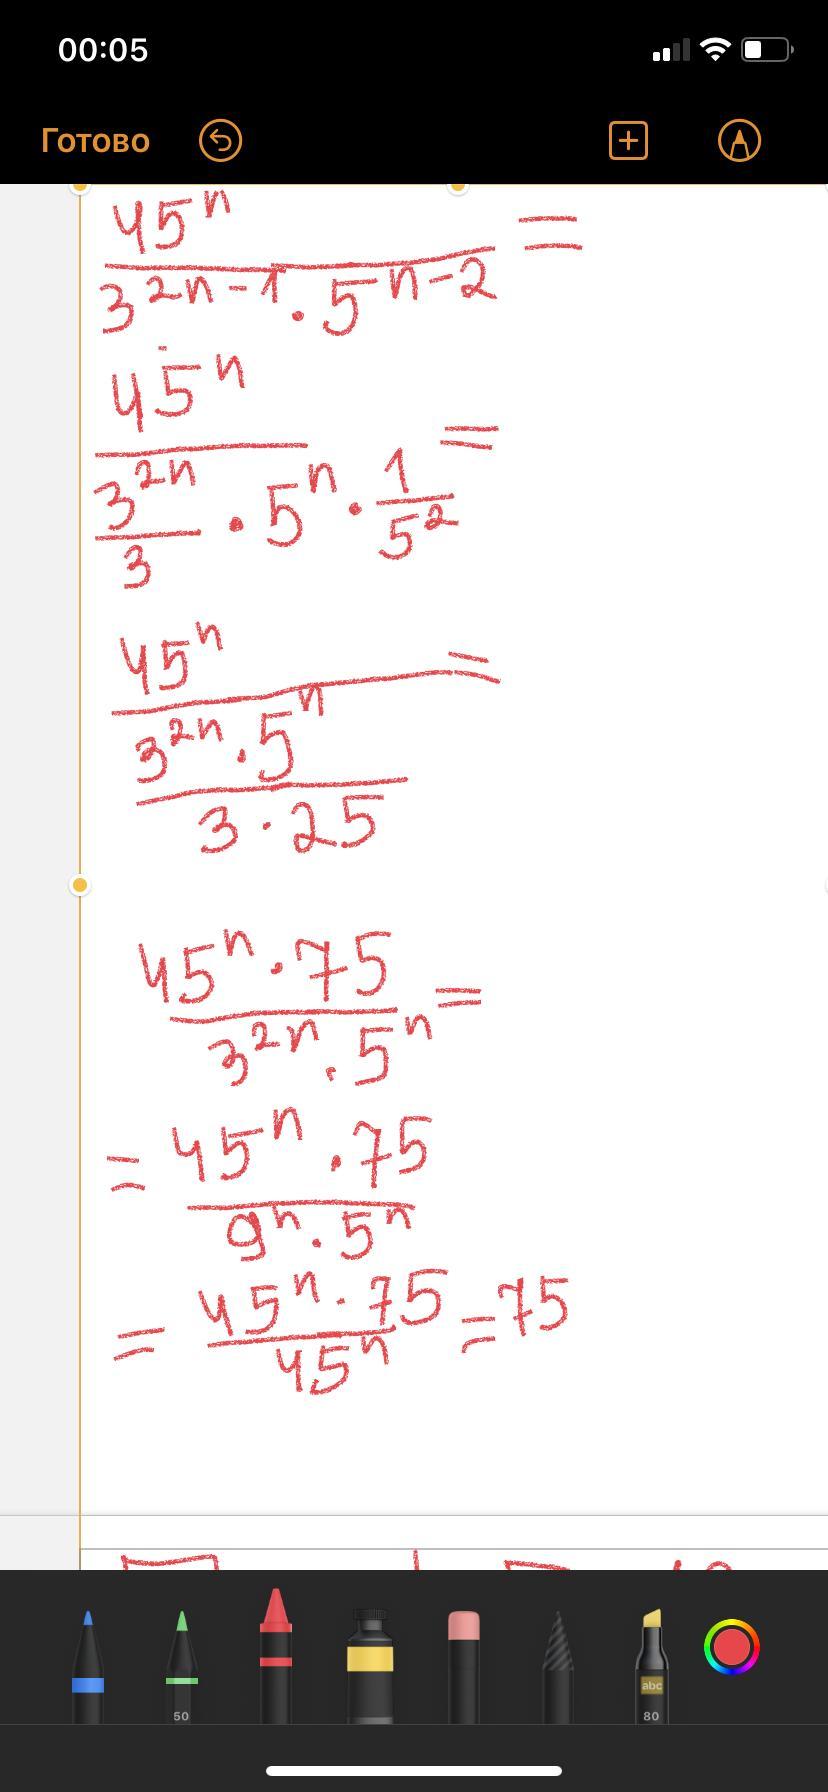 00:05
Готово
45ⁿ
=
3²ⁿ⁻¹ · 5ⁿ⁻²
45ⁿ
=
3²ⁿ/3 · 5ⁿ · 1/5²
45ⁿ
=
3²ⁿ · 5ⁿ
3 · 25
45ⁿ · 75
=
3²ⁿ · 5ⁿ
= 45ⁿ · 75
9ⁿ · 5ⁿ
= 45ⁿ · 75 = 75
45ⁿ
50
abc
80